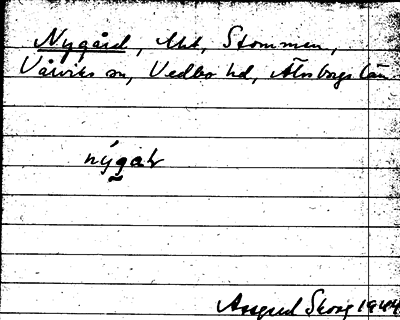 Nygård, Mik, Stommen,
Vårviks sn, Vedbo hd, Älvsborgs län.
nýgaɫr
Assgerd Skong 1944